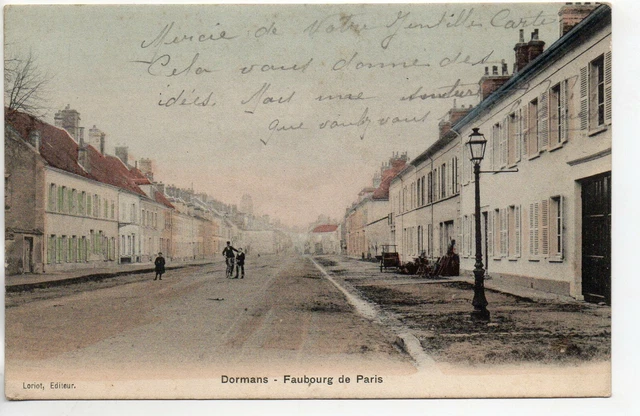 Mercie de Votre Gentille Carte
Cela vous donne des
idées. Mais ma
que voulez vous
Dormans - Faubourg de Paris
Loriot, Editeur.